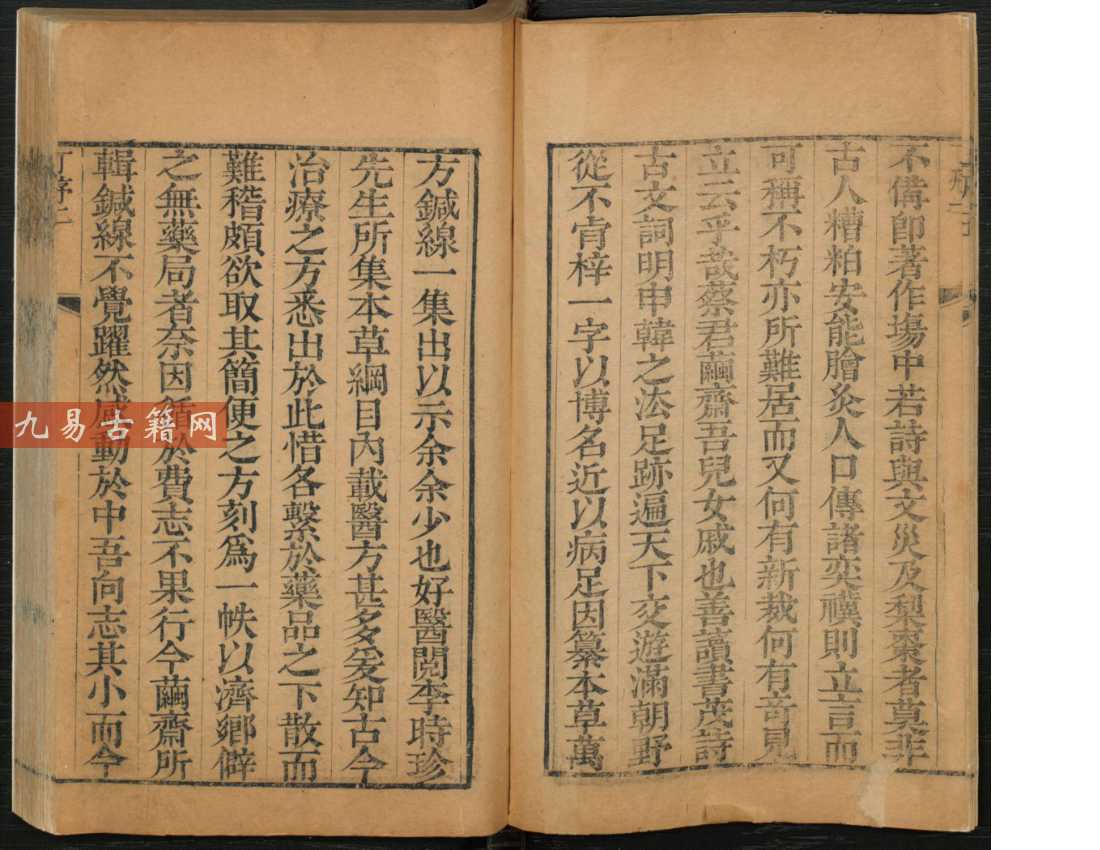 不備卽著作塲中若詩與文災及梨棗者莫非
古人糟粕安能膾炙人口傳諸奕禩則立言而
可稱不朽亦所難居而又何有新裁何有竒見
立云乎哉蔡君繭齋吾兒女戚也善讀書茂詩
古文詞明申韓之法足跡遍天下交遊滿朝野
從不肯梓一字以博名近以病足因纂本草萬
方鍼線一集出以示余余少也好醫閱李時珍
先生所集本草綱目內載醫方甚多爰知古今
治療之方悉出於此惜各繫於藥品之下散而
難稽頗欲取其簡便之方刻爲一帙以濟鄉僻
之無藥局者奈因循於費志不果行今繭齋所
輯鍼線不覺躍然感動於中吾向志其小而今
序二
九易古籍网